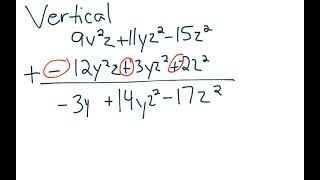 Vertical
9y²z+11yz²-15z²
+ -12y²z+3yz²+2z²
-3y +14yz²-17z²